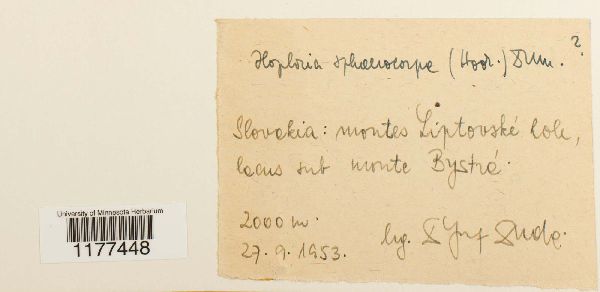 Haplozia sphaerocarpa (Hook.) Dum. ?
Slovakia: montes Liptovské hole,
lacus sub monte Bystrá.
2000 m.
27. 9. 1953. leg. Duda.
University of Minnesota Herbarium
1177448